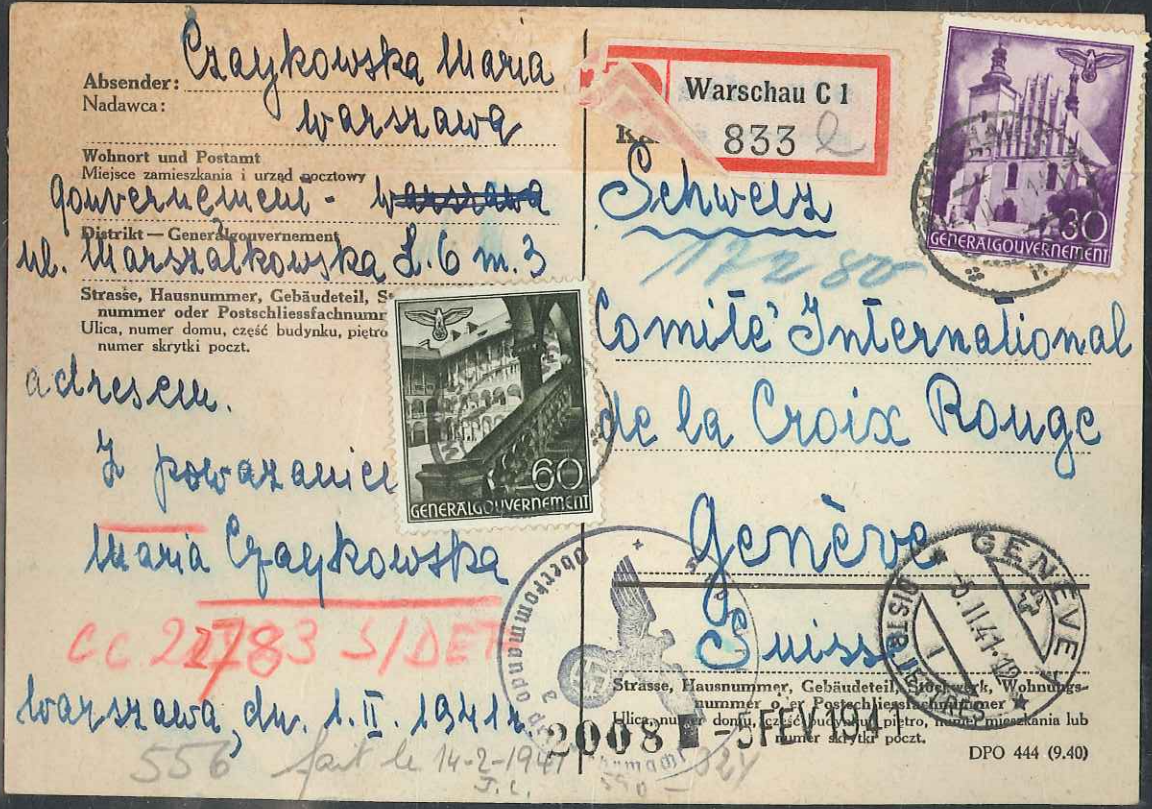 Absender: Czaykowska Maria
Nadawca:
Warszawa
Wohnort und Postamt
Miejsce zamieszkania i urząd pocztowy
Gouvernement - Warszawa
Distrikt — Generalgouvernement
ul. Marszałkowska L. 6 m. 3
Strasse, Hausnummer, Gebäudeteil,
nummer oder Postschliessfachnum
Ulica, numer domu, część budynku, piętro
numer skrytki poczt.
adresem.
Z poważaniem
Maria Czaykowska
CC 22783 S/DET
Warszawa, dn. 1. II. 1941r.
556 fait le 14-2-1941
60
GENERALGOUVERNEMENT
Warschau C 1
833
30
GENERALGOUVERNEMENT
Schweiz
17280
Comité International
de la Croix Rouge
Genève
Suisse
Strasse, Hausnummer, Gebäudeteil, Stockwerk, Wohnungs-
nummer oder Postschliessfachnummer
Ulica, numer domu, część budynku, piętro, numer mieszkania lub
numer skrytki poczt.
DPO 444 (9.40)
Oberkommando
GENÈVE 1
-5.II.41
DISTRIBUTION
20081 -5 FEV 1941